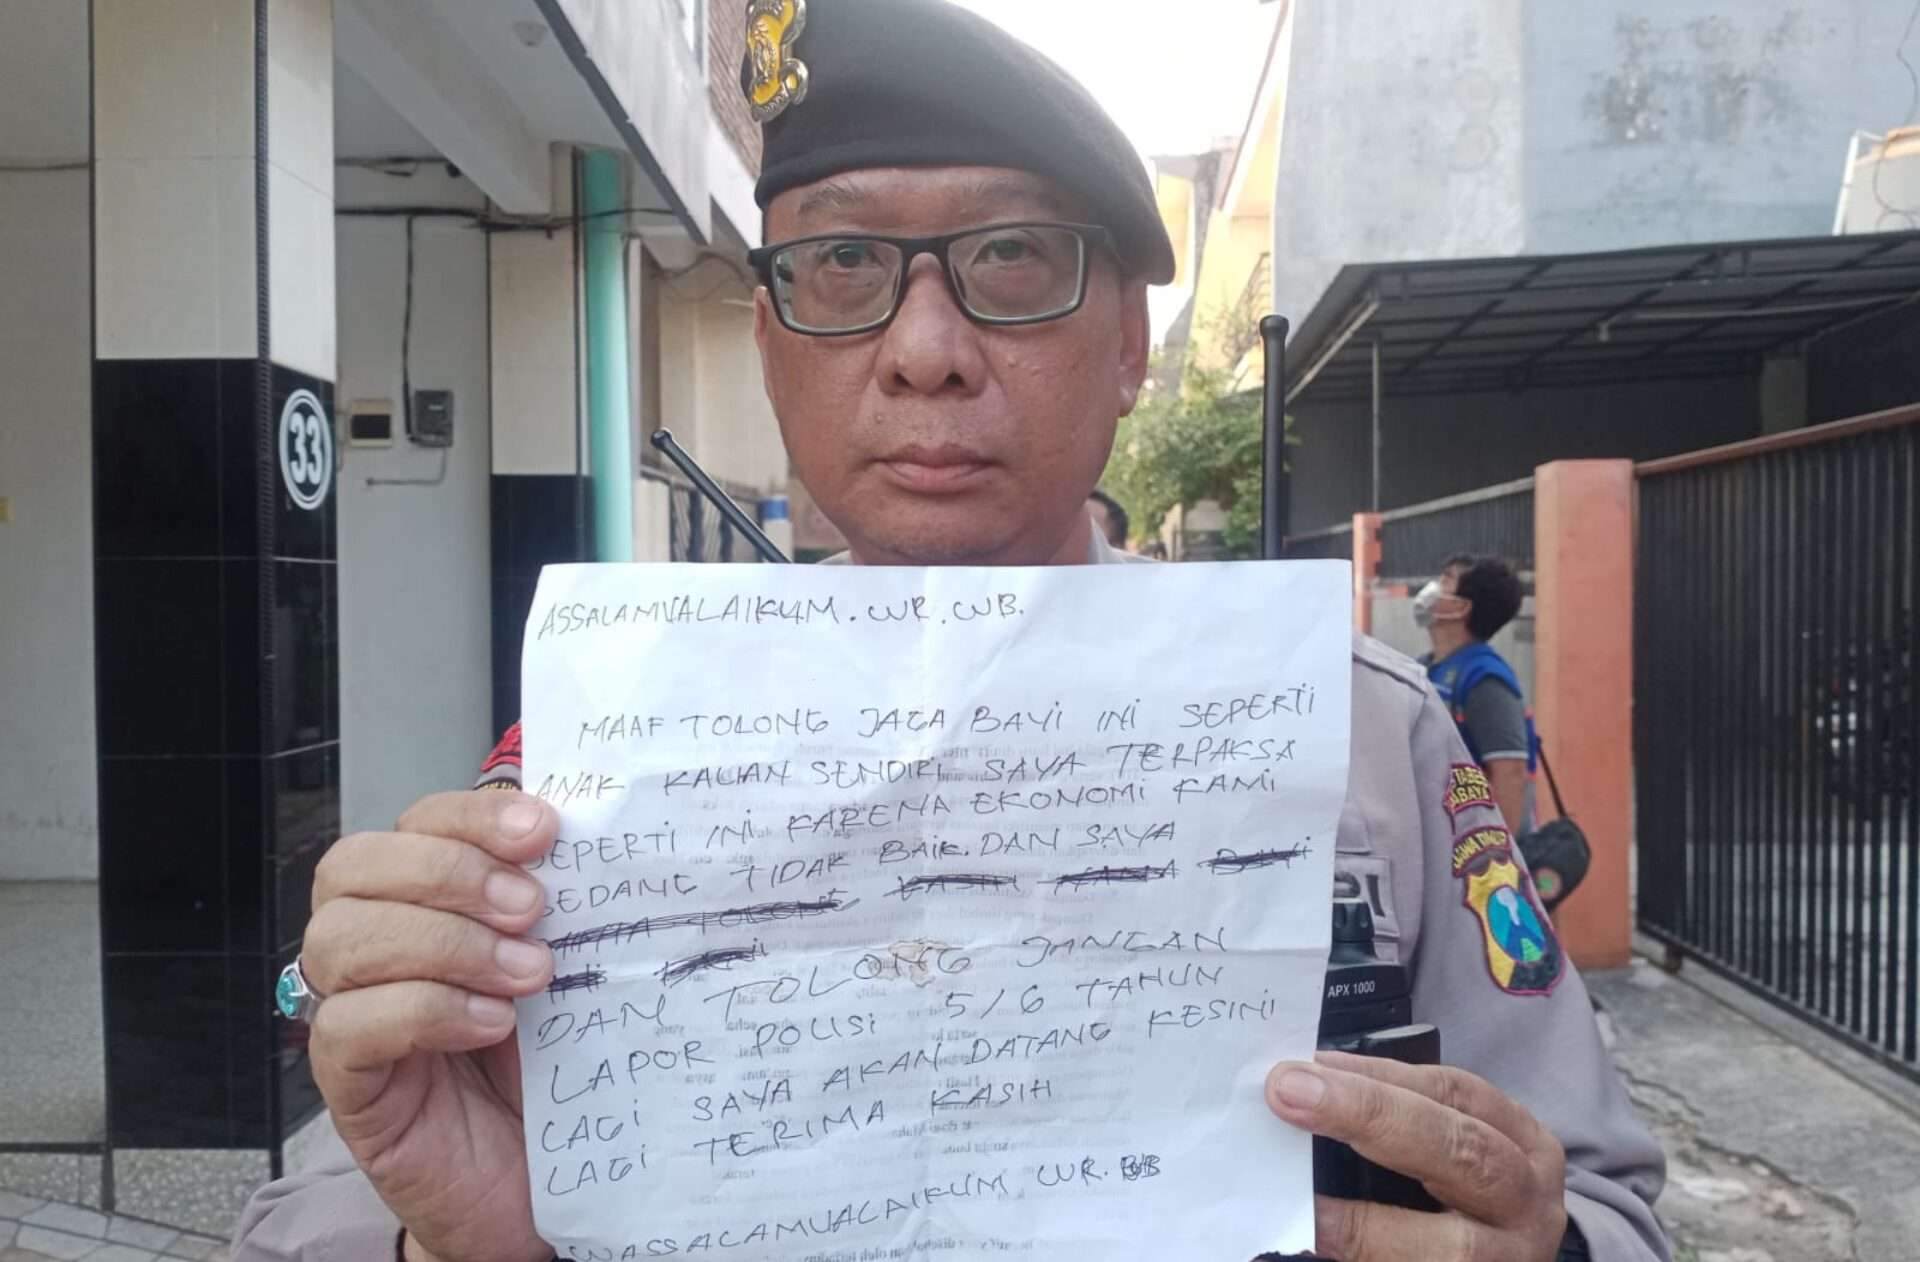 33
ASSALAMUALAIKUM. WR. WB.
MAAF TOLONG JAGA BAYI INI SEPERTI
ANAK KALIAN SENDIRI SAYA TERPAKSA
SEPERTI INI KARENA EKONOMI KAMI
SEDANG TIDAK BAIK. DAN SAYA
DAN TOLONG JANGAN
LAPOR POLISI 5/6 TAHUN
LAGI SAYA AKAN DATANG KESINI
LAGI TERIMA KASIH
WASSALAMUALAIKUM WR. WB
APX 1000
JAWA TIMUR